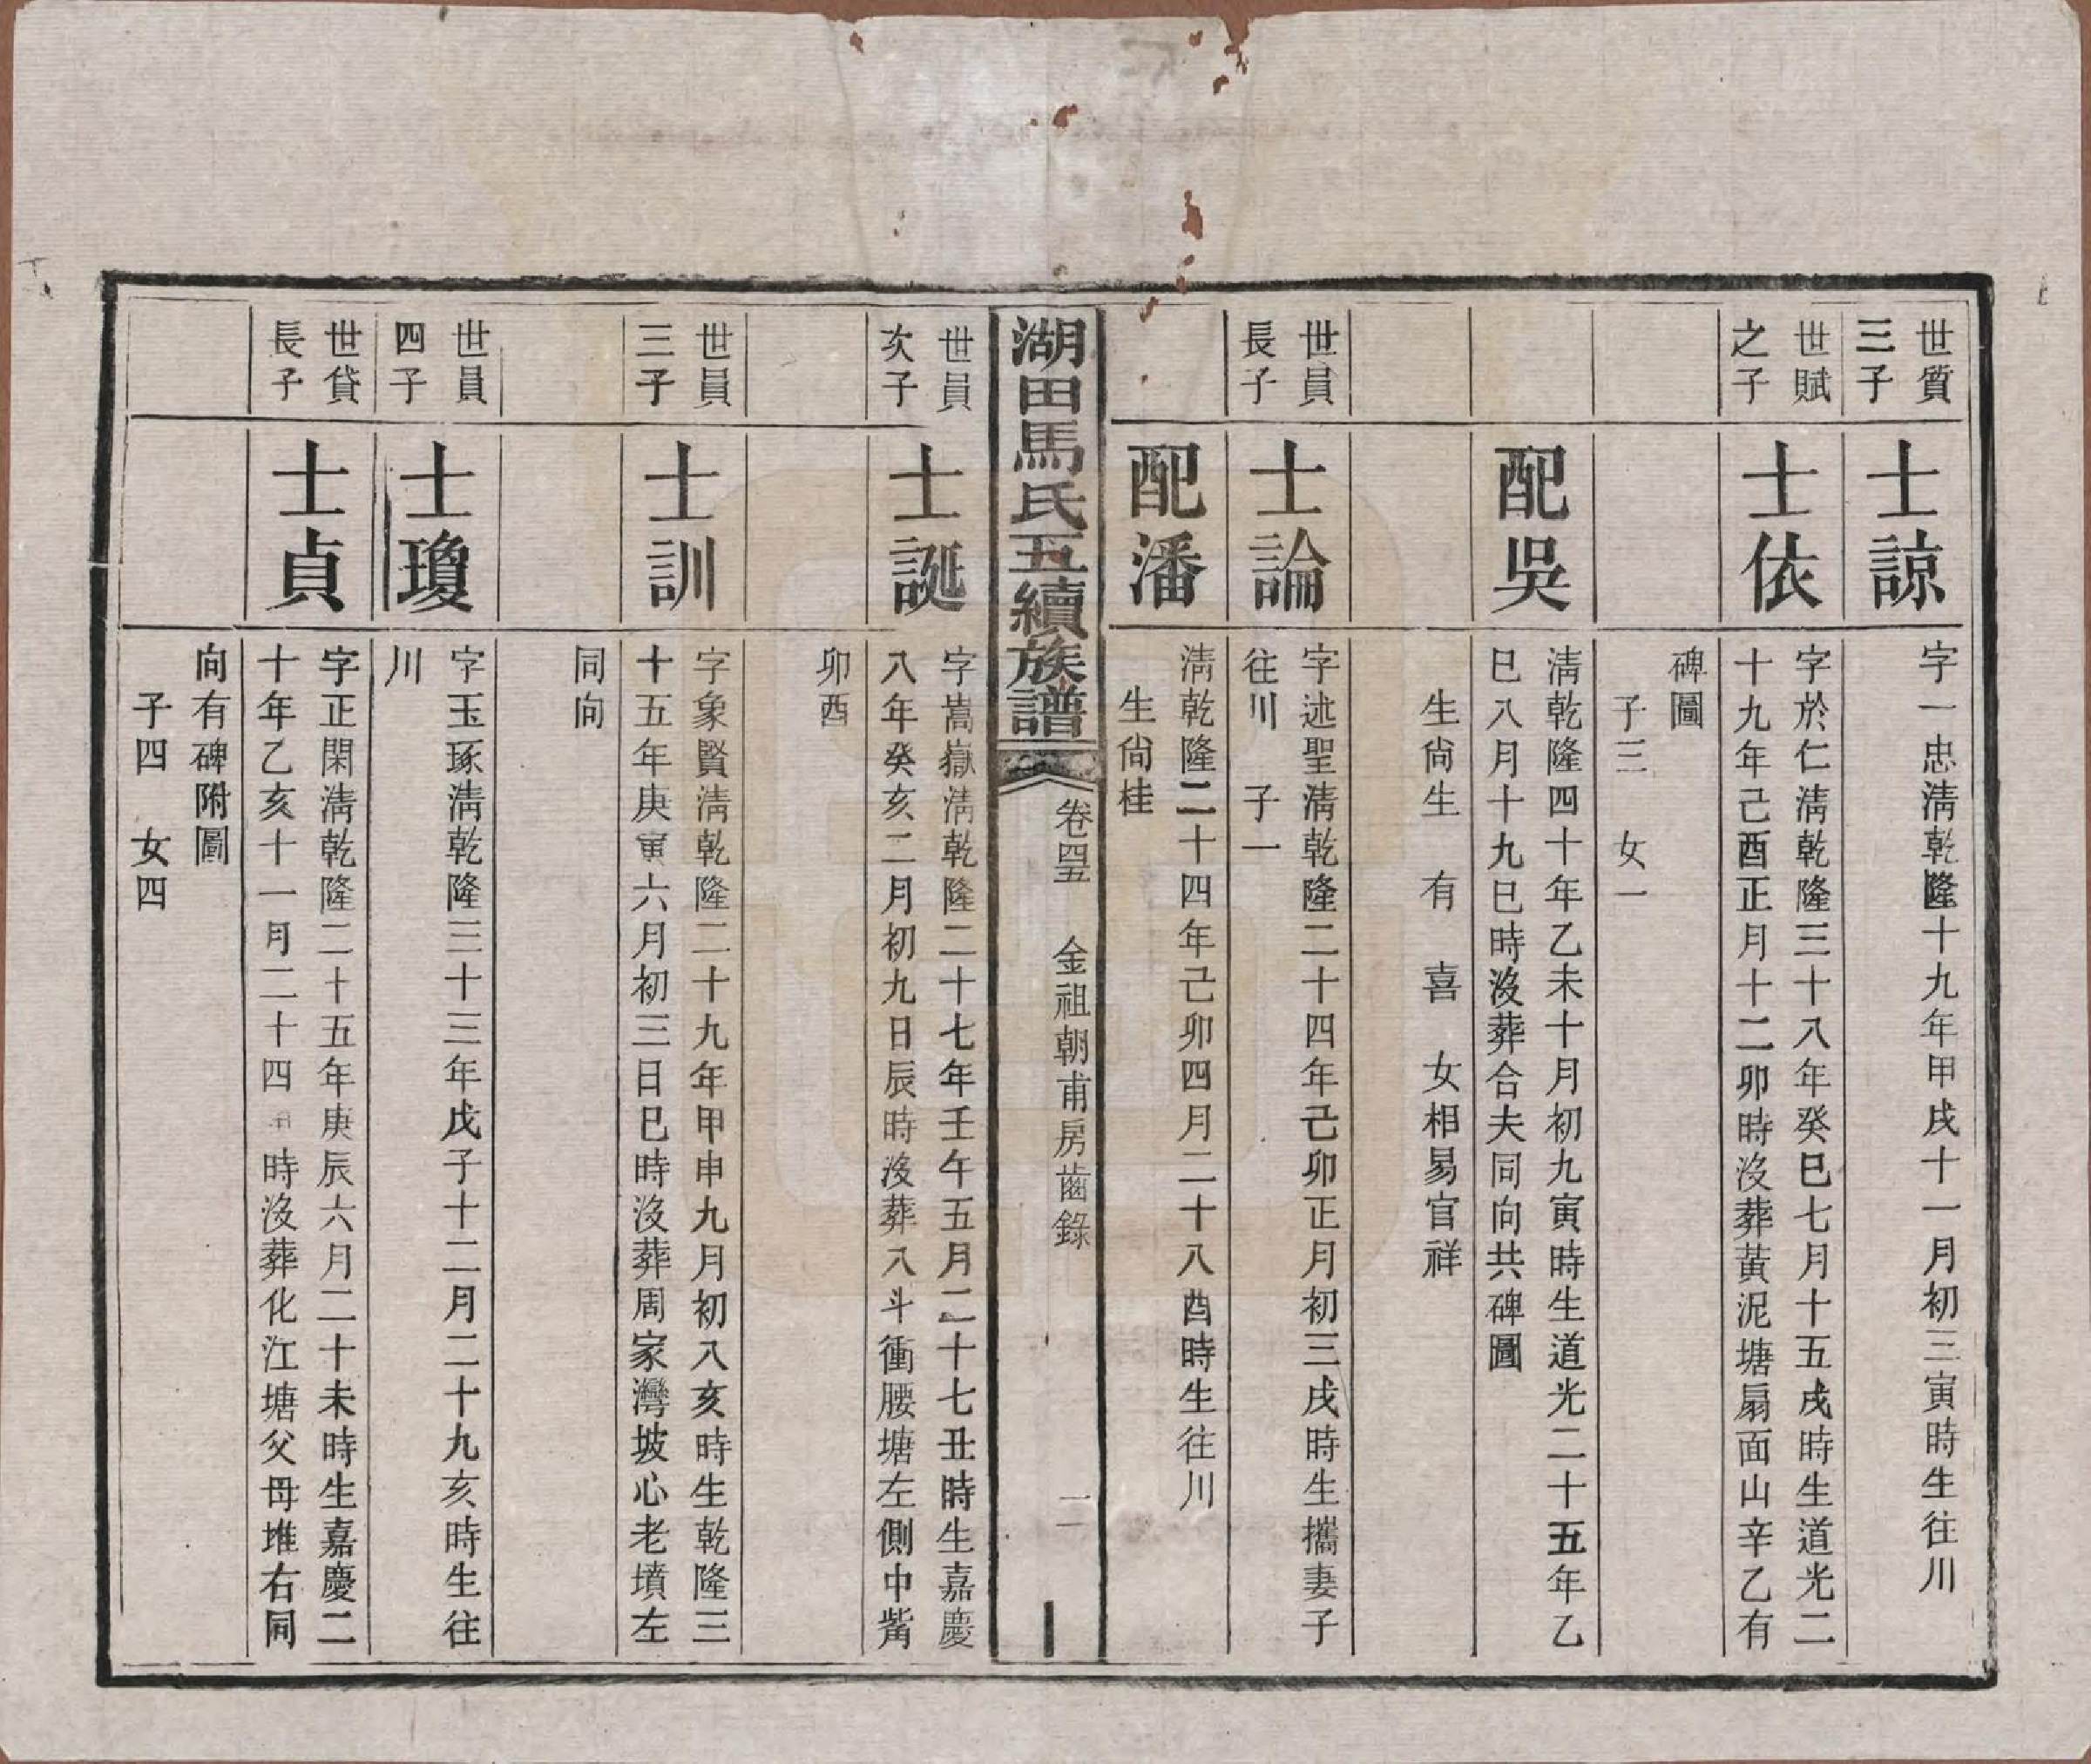 世質
三子
士諒
字一忠淸乾隆十九年甲戌十一月初三寅時生往川
世賦
之子
士依
字於仁淸乾隆三十八年癸巳七月十五戌時生道光二
十九年己酉正月十二卯時沒葬黃泥塘扇面山辛乙有
碑圖
子三 女一
配吳
淸乾隆四十年乙未十月初九寅時生道光二十五年乙
巳八月十九巳時沒葬合夫同向共碑圖
生尙生 有 喜 女相易官祥
世員
長子
士論
字述聖淸乾隆二十四年己卯正月初三戌時生攜妻子
往川 子一
配潘
淸乾隆二十四年己卯四月二十八酉時生往川
生尙桂
湖田馬氏五續族譜
卷四五 金祖朝甫房齒錄
世員
次子
士誕
字嵩嶽淸乾隆二十七年壬午五月二十七丑時生嘉慶
八年癸亥二月初九日辰時沒葬八斗衝腰塘左側中觜
卯酉
世員
三子
士訓
字象賢淸乾隆二十九年甲申九月初八亥時生乾隆三
十五年庚寅六月初三日巳時沒葬周家灣坡心老墳左
同向
世員
四子
士瓊
字玉琢淸乾隆三十三年戊子十二月二十九亥時生往
川
世貸
長子
士貞
字正閑淸乾隆二十五年庚辰六月二十未時生嘉慶二
十年乙亥十一月二十四 時沒葬化江塘父母堆右同
向有碑附圖
子四 女四